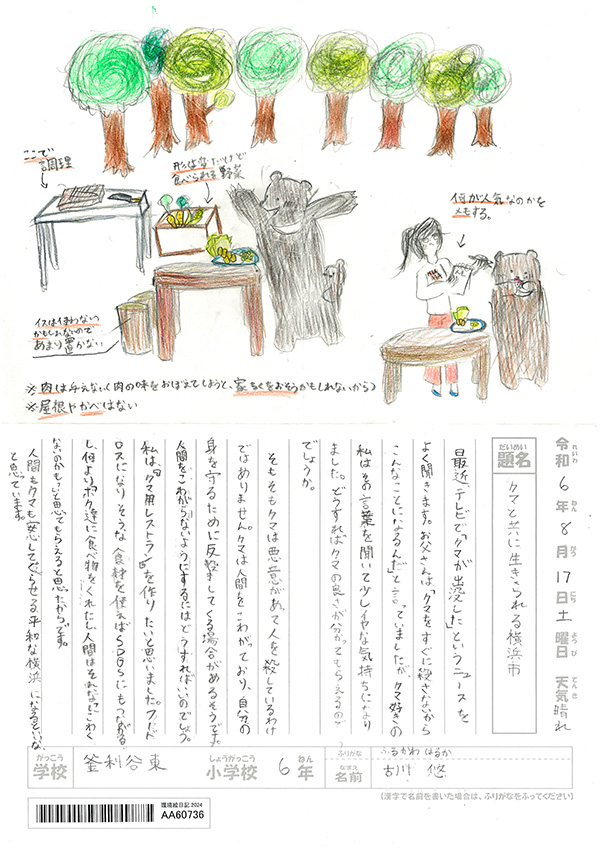 ここで
調理
形は変だけど
食べられる野菜
何が人気なのかを
メモする。
イスは使わない
かもしれないので
あまり置かない
※肉は与えない(肉の味をおぼえてしまうと、家ちくをおそうかもしれないから)
※屋根やかべはない
令和6年8月17日土曜日 天気晴れ
れいわ ねん がつ にち ようび てんき
だいめい
題名
クマと共に生きられる横浜市
最近、テレビで「クマが出没した」というニュースを
よく聞きます。お父さんは、「クマをすぐに殺さないから
こんなことになるんだ」と言っていましたが、クマ好きの
私はその言葉を聞いて少しイヤな気持ちになり
ました。どうすればクマの良さが分かってもらえるので
しょうか。
そもそもクマは悪意があって人を殺しているわけ
ではありません。クマは人間をこわがっており、自分の
身を守るために反撃してくる場合があるそうです。
人間をこわがらないようにするにはどうすればいいのでしょう。
私は、「クマ用レストラン」を作りたいと思いました。フード
ロスになりそうな食材を使えばSDGsにもつながる
し、何より「ボク達に食べ物をくれたし、人間はそんなにこわく
ないのかも」と思ってもらえると思ったからです。
人間もクマも安心してくらせる平和な横浜になるといいな、
と思っています。
がっこう
学校
釜利谷東
しょうがっこう
小学校
6
ねん
年
ふりがな
なまえ
名前
ふるかわ はるか
古川 悠
(漢字で名前を書いた場合は、ふりがなをふってください)
環境絵日記 2024
AA60736